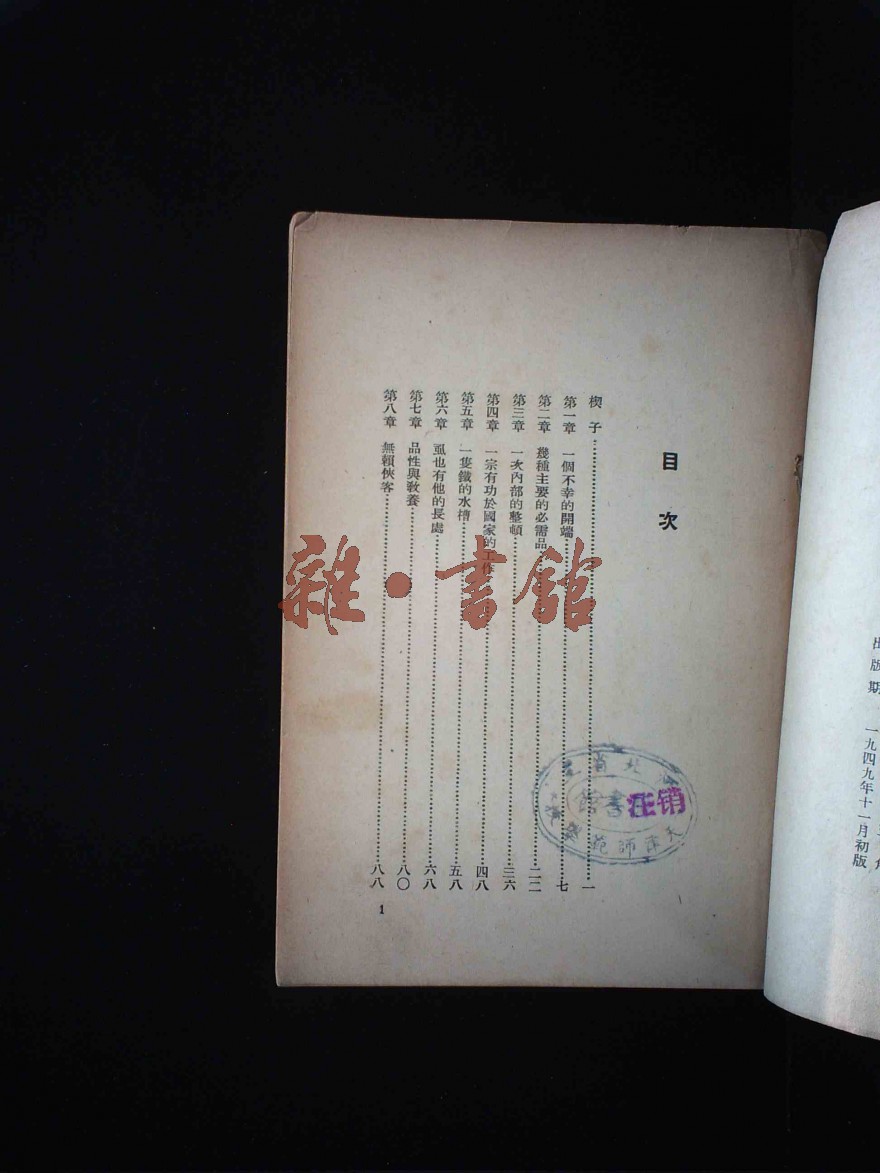 目次
楔子 一
第一章 一個不幸的開端 七
第二章 幾種主要的必需品 二二
第三章 一次內部的整頓 三六
第四章 一宗有功於國家的工作 四八
第五章 一隻鐵的水槽 五八
第六章 虱也有他的長處 六八
第七章 品性與敎養 八〇
第八章 無賴俠客 八八
1
注销
天津師範學
書館
雜·書館
出版期
一九四九年十一月初版